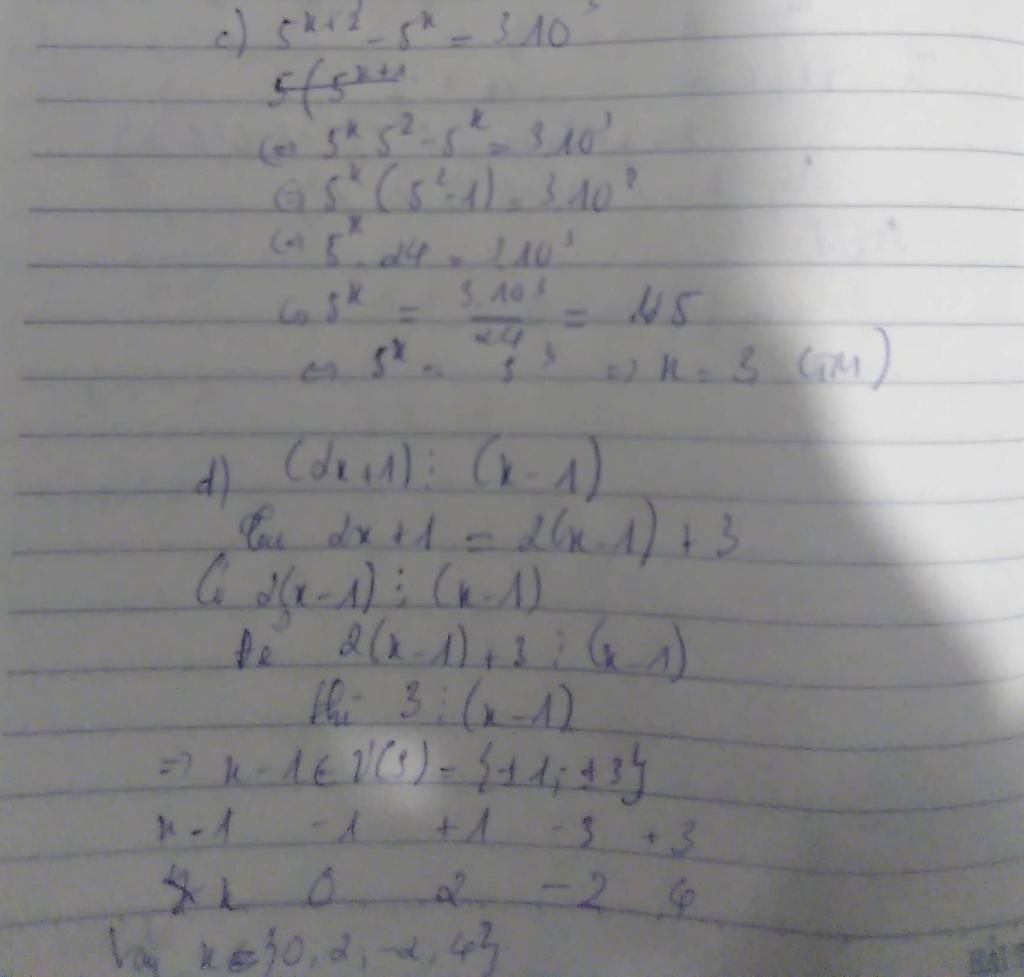 c) 5^{x+2} - 5^x = 3.10^3
5(5^{x+1}
<=> 5^x.5^2 - 5^x = 3.10^3
<=> 5^x(5^2-1) = 3.10^3
<=> 5^x.24 = 3.10^3
<=> 5^x = \frac{3.10^3}{24} = 125
<=> 5^x = 5^3 => x = 3 (TM)
d) (2x+1) ⋮ (x-1)
2x+1 = 2(x-1)+3
Có 2(x-1) ⋮ (x-1)
Để 2(x-1)+3 ⋮ (x-1)
thì 3 ⋮ (x-1)
=> x-1 ∈ Ư(3) = {±1; ±3}
x-1 -1 +1 -3 +3
x 0 2 -2 4
Vậy x ∈ {0, 2, -2, 4}